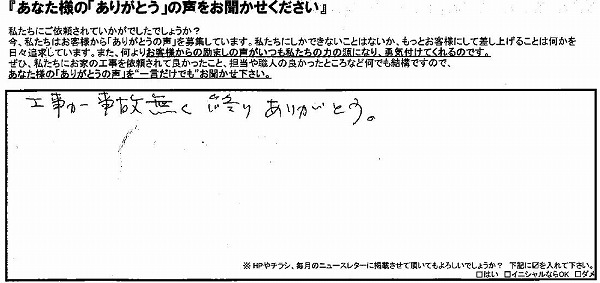 『あなた様の「ありがとう」の声をお聞かせください』
私たちにご依頼されていかがでしたでしょうか？
今、私たちはお客様から「ありがとうの声」を募集しています。私たちにしかできないことはないか、もっとお客様にして差し上げることは何かを
日々追求しています。また、何よりお客様からの励ましの声がいつも私たちの力の源になり、勇気付けてくれるのです。
ぜひ、私たちにお家の工事を依頼されて良かったこと、担当や職人の良かったところなど何でも結構ですので、
あなた様の「ありがとうの声」を“一言だけでも”お聞かせ下さい。
工事が一事故無く終りありがとう。
※HPやチラシ、毎月のニュースレターに掲載させて頂いてもよろしいでしょうか？ 下記に☑を入れて下さい。
□はい □イニシャルならOK □ダメ